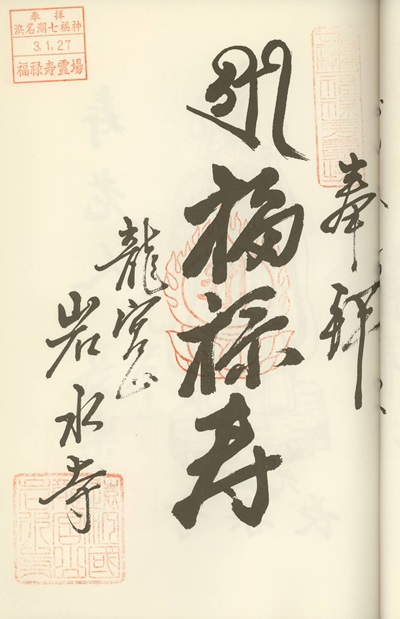 奉拝
福禄寿
龍宮山
岩水寺
奉拝
浜名湖七福神
3.1.27
福禄寿霊場